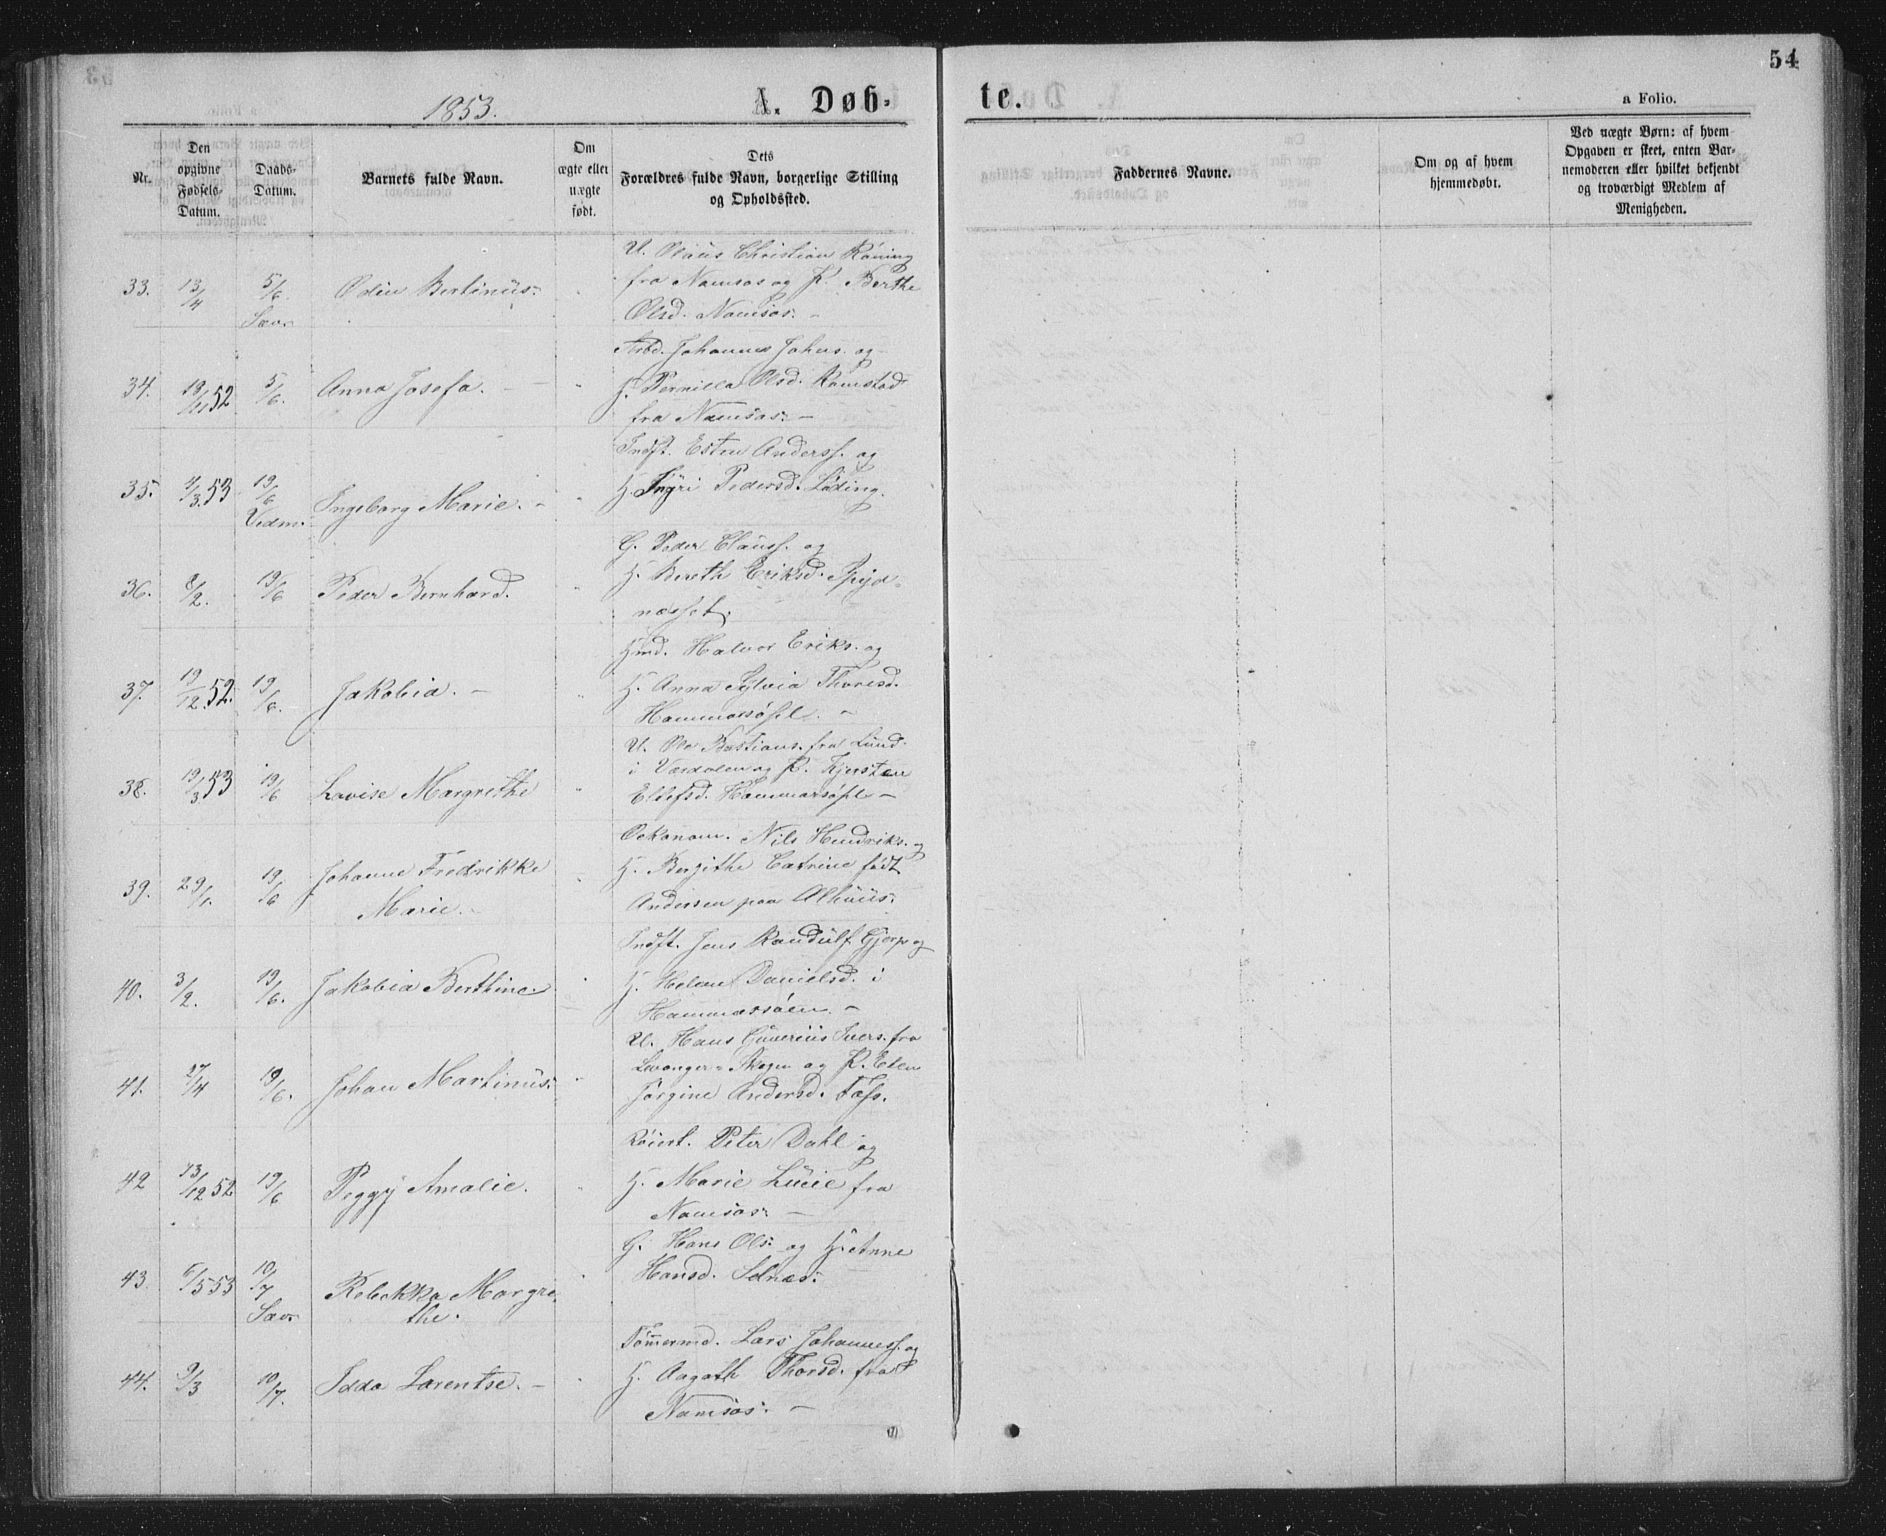 54
1853.
A. Døbte.
a Folio.
Nr.
Den opgivne Fødsels-Datum.
Daabs-Datum.
Barnets fulde Navn.
Om ægte eller uægte født.
Dets Forældres fulde Navn, borgerlige Stilling og Opholdssted.
Faddernes Navne.
Om og af hvem hjemmedøbt.
Ved uægte Børn: af hvem Opgaven er skeet, enten Barnemoderen eller hvilket bekjendt og troværdigt Medlem af Menigheden.
U. Olaus Christian Röning
33. 13/4 5/6. Odin Bertinus. fra Namsos og P. Berthe
Sæv. Olsd. Namsos.
Arbd. Johannes Johns. og
34. 19/11 52 5/6. Anna Josefa. H. Pernilla Olsd. Ramstad
fra Namsos.
Indst. Esten Anderss. og
35. 4/3. 53 19/6 Ingeborg Marie. H. Ingri Pedersd. Löding.
Vedm.
G. Peder Clauss. og
36. 8/2. 19/6 Peder Bernhard. H. Bereth Eriksd. Spyd-
næsset.
Hmd. Halvor Eriks. og
37. 19/12. 52. 19/6. Jakobia. H. Anna Sylvia Thoresd.
U. Ole Bastians. fra Lund
38. 19/3 53 19/6 Lovise Margrethe i Værdalen og P. Kjersten
Oekonom. Nils Hendriks. og
39. 29/1. 19/6 Johanne Fredrikke H. Bergithe Catrine født
Marie. Andersen paa
Indst. Jens Randulf og
40. 3/2. 19/6. Jakobia Berthine. H. Helena Danielsd. i
U. Hans Ivers. fra
41. 27/4 19/6. Johan Martinus. Levanger-Skogn og P. Elen
Jörgine Andersd.
Peter Dahl og
42 13/12 52 19/6 Peggy Amalie. H. Marie Lucie fra
Namsos.
G. Hans Ols. og H. Anne
43. 6/5 53 10/7 Rebekka Margre- Hansd. Selnæs.
Sæv. the.
Tömermd. Lars Johanness. og
44. 9/3 10/7. Idda Larentse. H. Aagath Thorsd. fra
Namsos.